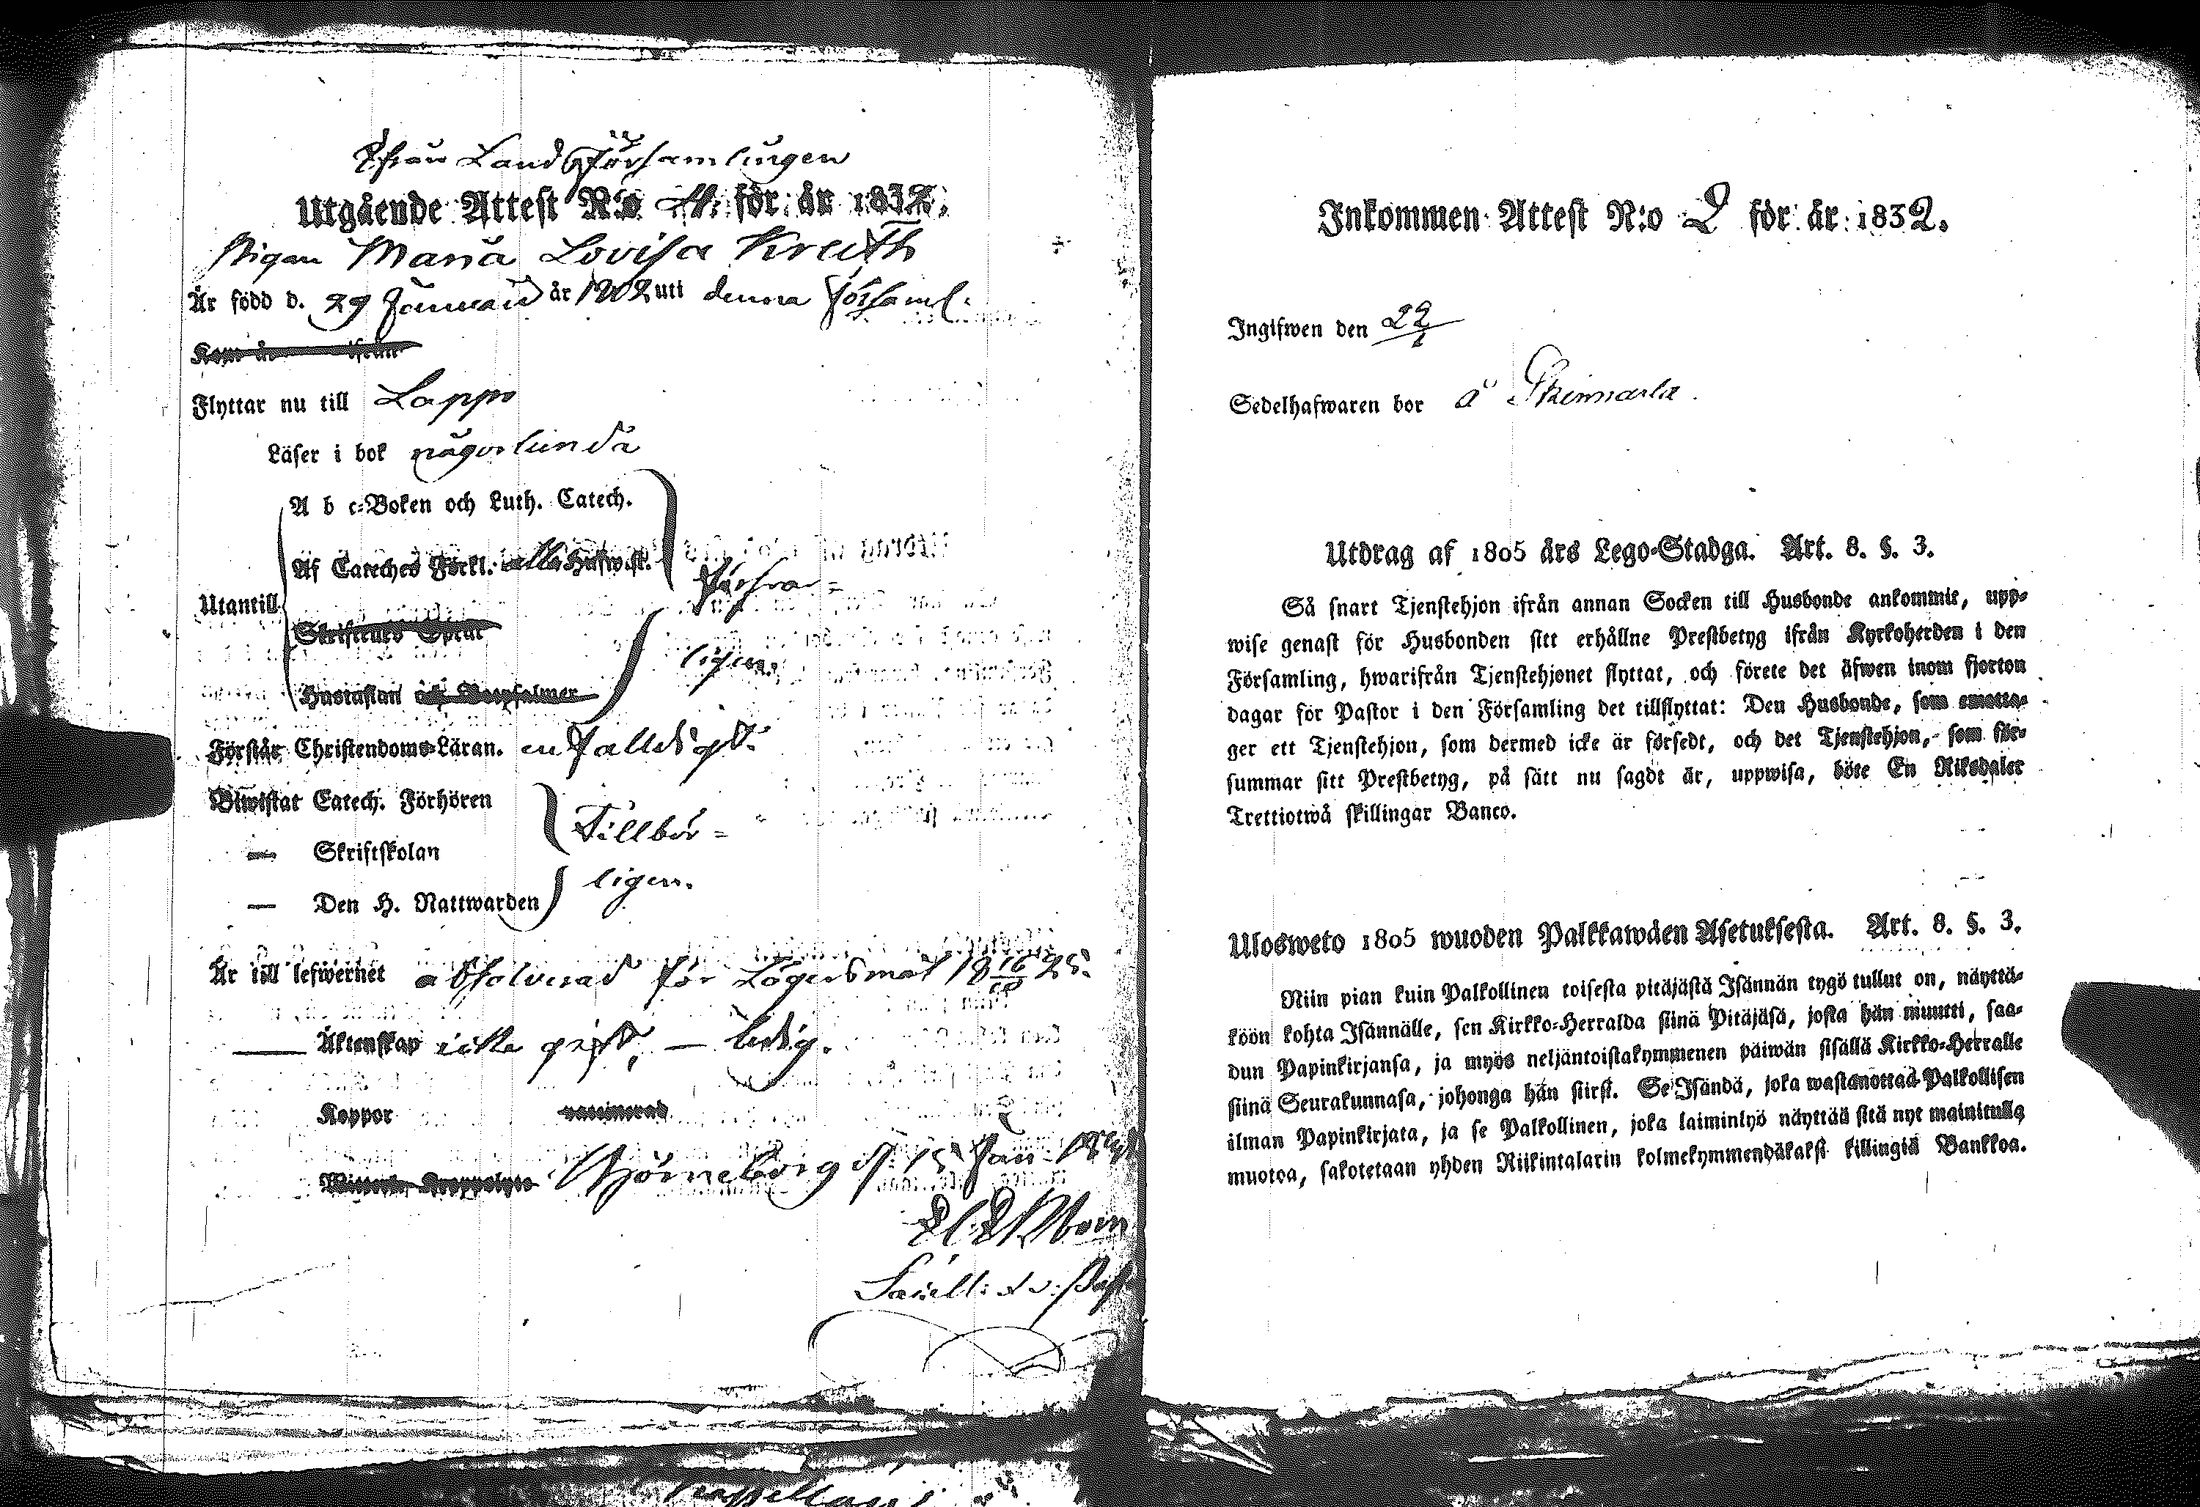 ifrån Lands Församlingen
Utgående Attest N:o 4. för år 1832.
Pigan Maria Lovisa Kreuth
Är född d. 29 Januari år 1802 uti denna Församl:
Kom år ifrån
Flyttar nu till Lappo
Läser i bok någorlunda
A b c-Boken och Luth. Catech.
Af Cateches Förkl. alla Hufwst.
Försvar=
Utantill
Skriftenes Språk
ligen.
Hustaflan och Botpsalmer
Förstår Christendoms-Läran. enfalldigt.
Biwistat Catech. Förhören
Tillbör=
— Skriftskolan
ligen.
— Den H. Nattwarden
Är till lefwernet absolverad för Lägersmål 18 25.
— Äktenskap icke gift, — ledig.
Koppor vaccinerad
Björneborg d. 15 Jan.
Sacell:
Inkommen Attest N:o 2 för år 1832.
Ingifwen den 22/1
Sedelhafwaren bor å Skinnarla.
Utdrag af 1805 års Lego-Stadga. Art. 8. §. 3.
Så snart Tjenstehjon ifrån annan Socken till Husbonde ankommit, upp-
wise genast för Husbonden sitt erhållne Prestbetyg ifrån Kyrkoherden i den
Församling, hwarifrån Tjenstehjonet flyttat, och förete det äfwen inom fjorton
dagar för Pastor i den Församling det tillflyttat: Den Husbonde, som emotta-
ger ett Tjenstehjon, som dermed icke är försedt, och det Tjenstehjon, som för-
summar sitt Prestbetyg, på sätt nu sagdt är, uppwisa, böte En Riksdaler
Trettiotwå skillingar Banco.
Ulosweto 1805 wuoden Palkkawäen Asetuksesta. Art. 8. §. 3.
Niin pian kuin Palkollinen toisesta pitäjästä Isännän tygö tullut on, näyttä-
köön kohta Isännälle, sen Kirkko-Herralda siinä Pitäjäsä, josta hän muutti, saa-
dun Papinkirjansa, ja myös neljäntoistakymmenen päiwän sisällä Kirkko-Herralle
siinä Seurakunnasa, johonga hän siirsi. Se Isändä, joka wastanottaa Palkollisen
ilman Papinkirjata, ja se Palkollinen, joka laiminlyö näyttää sitä nyt mainitulla
muotoa, sakotetaan yhden Riikintalarin kolmekymmendäkaksi killingiä Bankkoa.